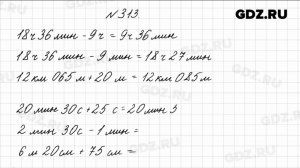 GDZ.RU
№ 313
18 ч 36 мин - 9 ч = 9 ч 36 мин
18 ч 36 мин - 9 мин = 18 ч 27 мин
12 км 065 м + 20 м = 12 км 085 м
20 мин 30 с + 25 с = 20 мин 5
2 мин 30 с - 1 мин =
6 м 20 см + 75 см =
GDZ.RU